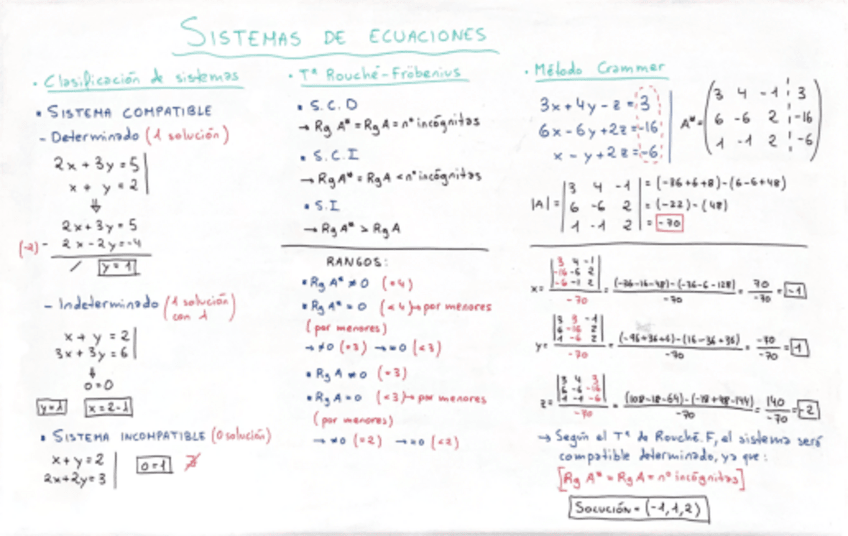 SISTEMAS DE ECUACIONES
• Clasificación de sistemas
• SISTEMA COMPATIBLE
- Determinado (1 solución)
2x + 3y = 5
x + y = 2
⇓
2x + 3y = 5
(-2) - 2x - 2y = -4
/ y = 1
- Indeterminado (1 solución con λ)
x + y = 2
3x + 3y = 6
↓
0 = 0
y = λ x = 2 - λ
• SISTEMA INCOMPATIBLE (0 solución)
x + y = 2
2x + 2y = 3
0 = 1 ∄
• Tª Rouché-Fröbenius
• S.C.D
→ Rg A* = Rg A = nº incógnitas
• S.C.I
→ Rg A* = Rg A < nº incógnitas
• S.I
→ Rg A* > Rg A
RANGOS:
• Rg A* ≠ 0 (= 4)
• Rg A* = 0 (< 4) → por menores
(por menores)
→ ≠0 (= 3) → =0 (< 3)
• Rg A ≠ 0 (= 3)
• Rg A = 0 (< 3) → por menores
(por menores)
→ ≠0 (= 2) → =0 (< 2)
• Método Crammer
3x + 4y - z = 3
6x - 6y + 2z = -16
x - y + 2z = -6
A* =
3 4 -1 3
6 -6 2 -16
1 -1 2 -6
|A| =
3 4 -1
6 -6 2
1 -1 2
= (-36+6+8) - (6-6+48)
= (-22) - (48)
= -70
x =
3 4 -1
-16 -6 2
-6 -1 2
-70
= (-36-16-48)-(-36-6-128) / -70 = 70 / -70 = -1
y =
3 3 -1
6 -16 2
1 -6 2
-70
= (-96+36+6)-(16-36+36) / -70 = -70 / -70 = 1
z =
3 4 3
6 -6 -16
1 -1 -6
-70
= (108-18-64)-(-18+48-144) / -70 = 140 / -70 = -2
→ Según el Tª de Rouché.F, el sistema será
compatible determinado, ya que:
[Rg A* = Rg A = nº incógnitas]
SOLUCIÓN = (-1,1,2)